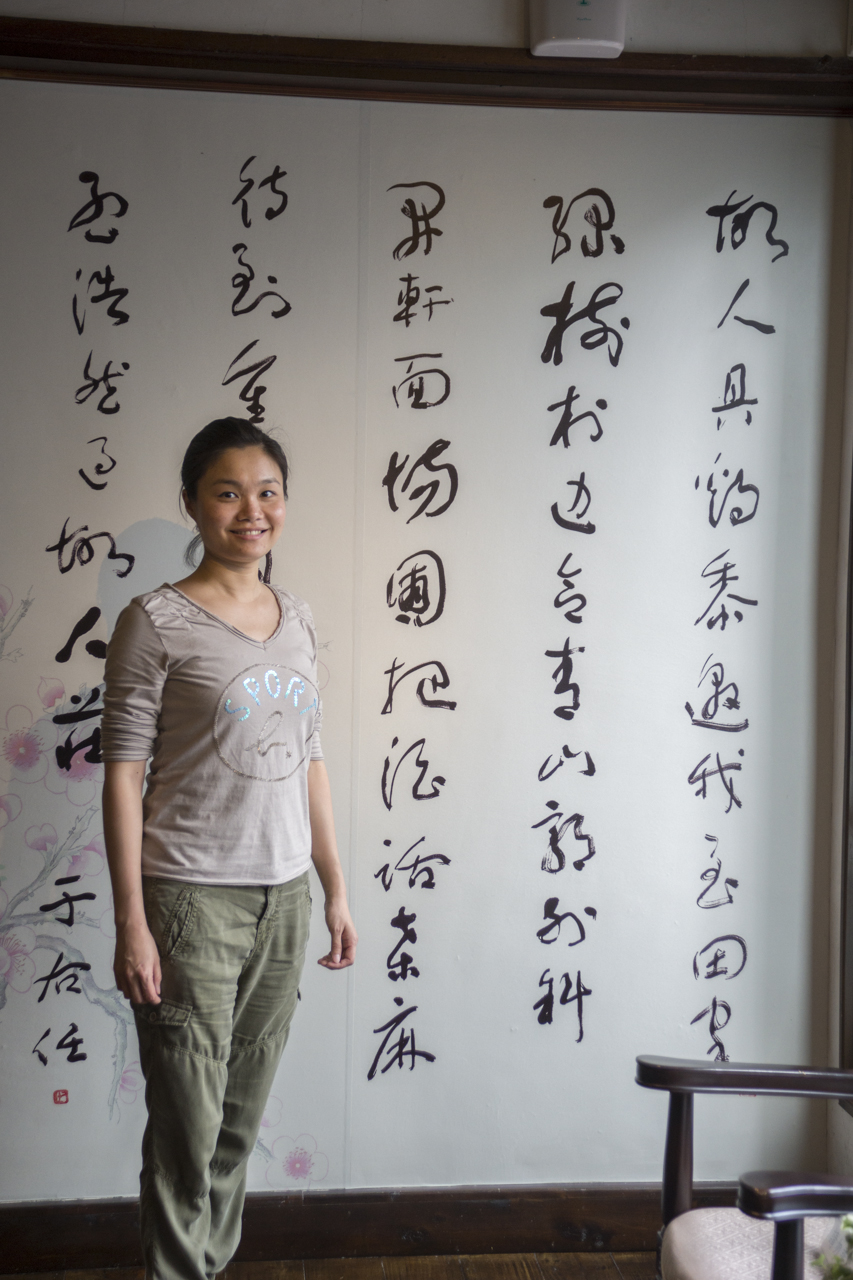 故人具鷄黍邀我至田家
綠樹村边合青山郭外斜
開軒面場圃把酒話桑麻
待到重
孟浩然过故人莊
于右任
SPORT